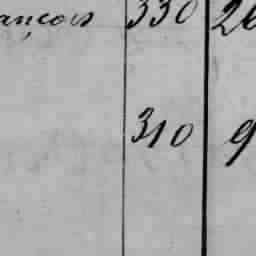 ançois 330 26
310 9